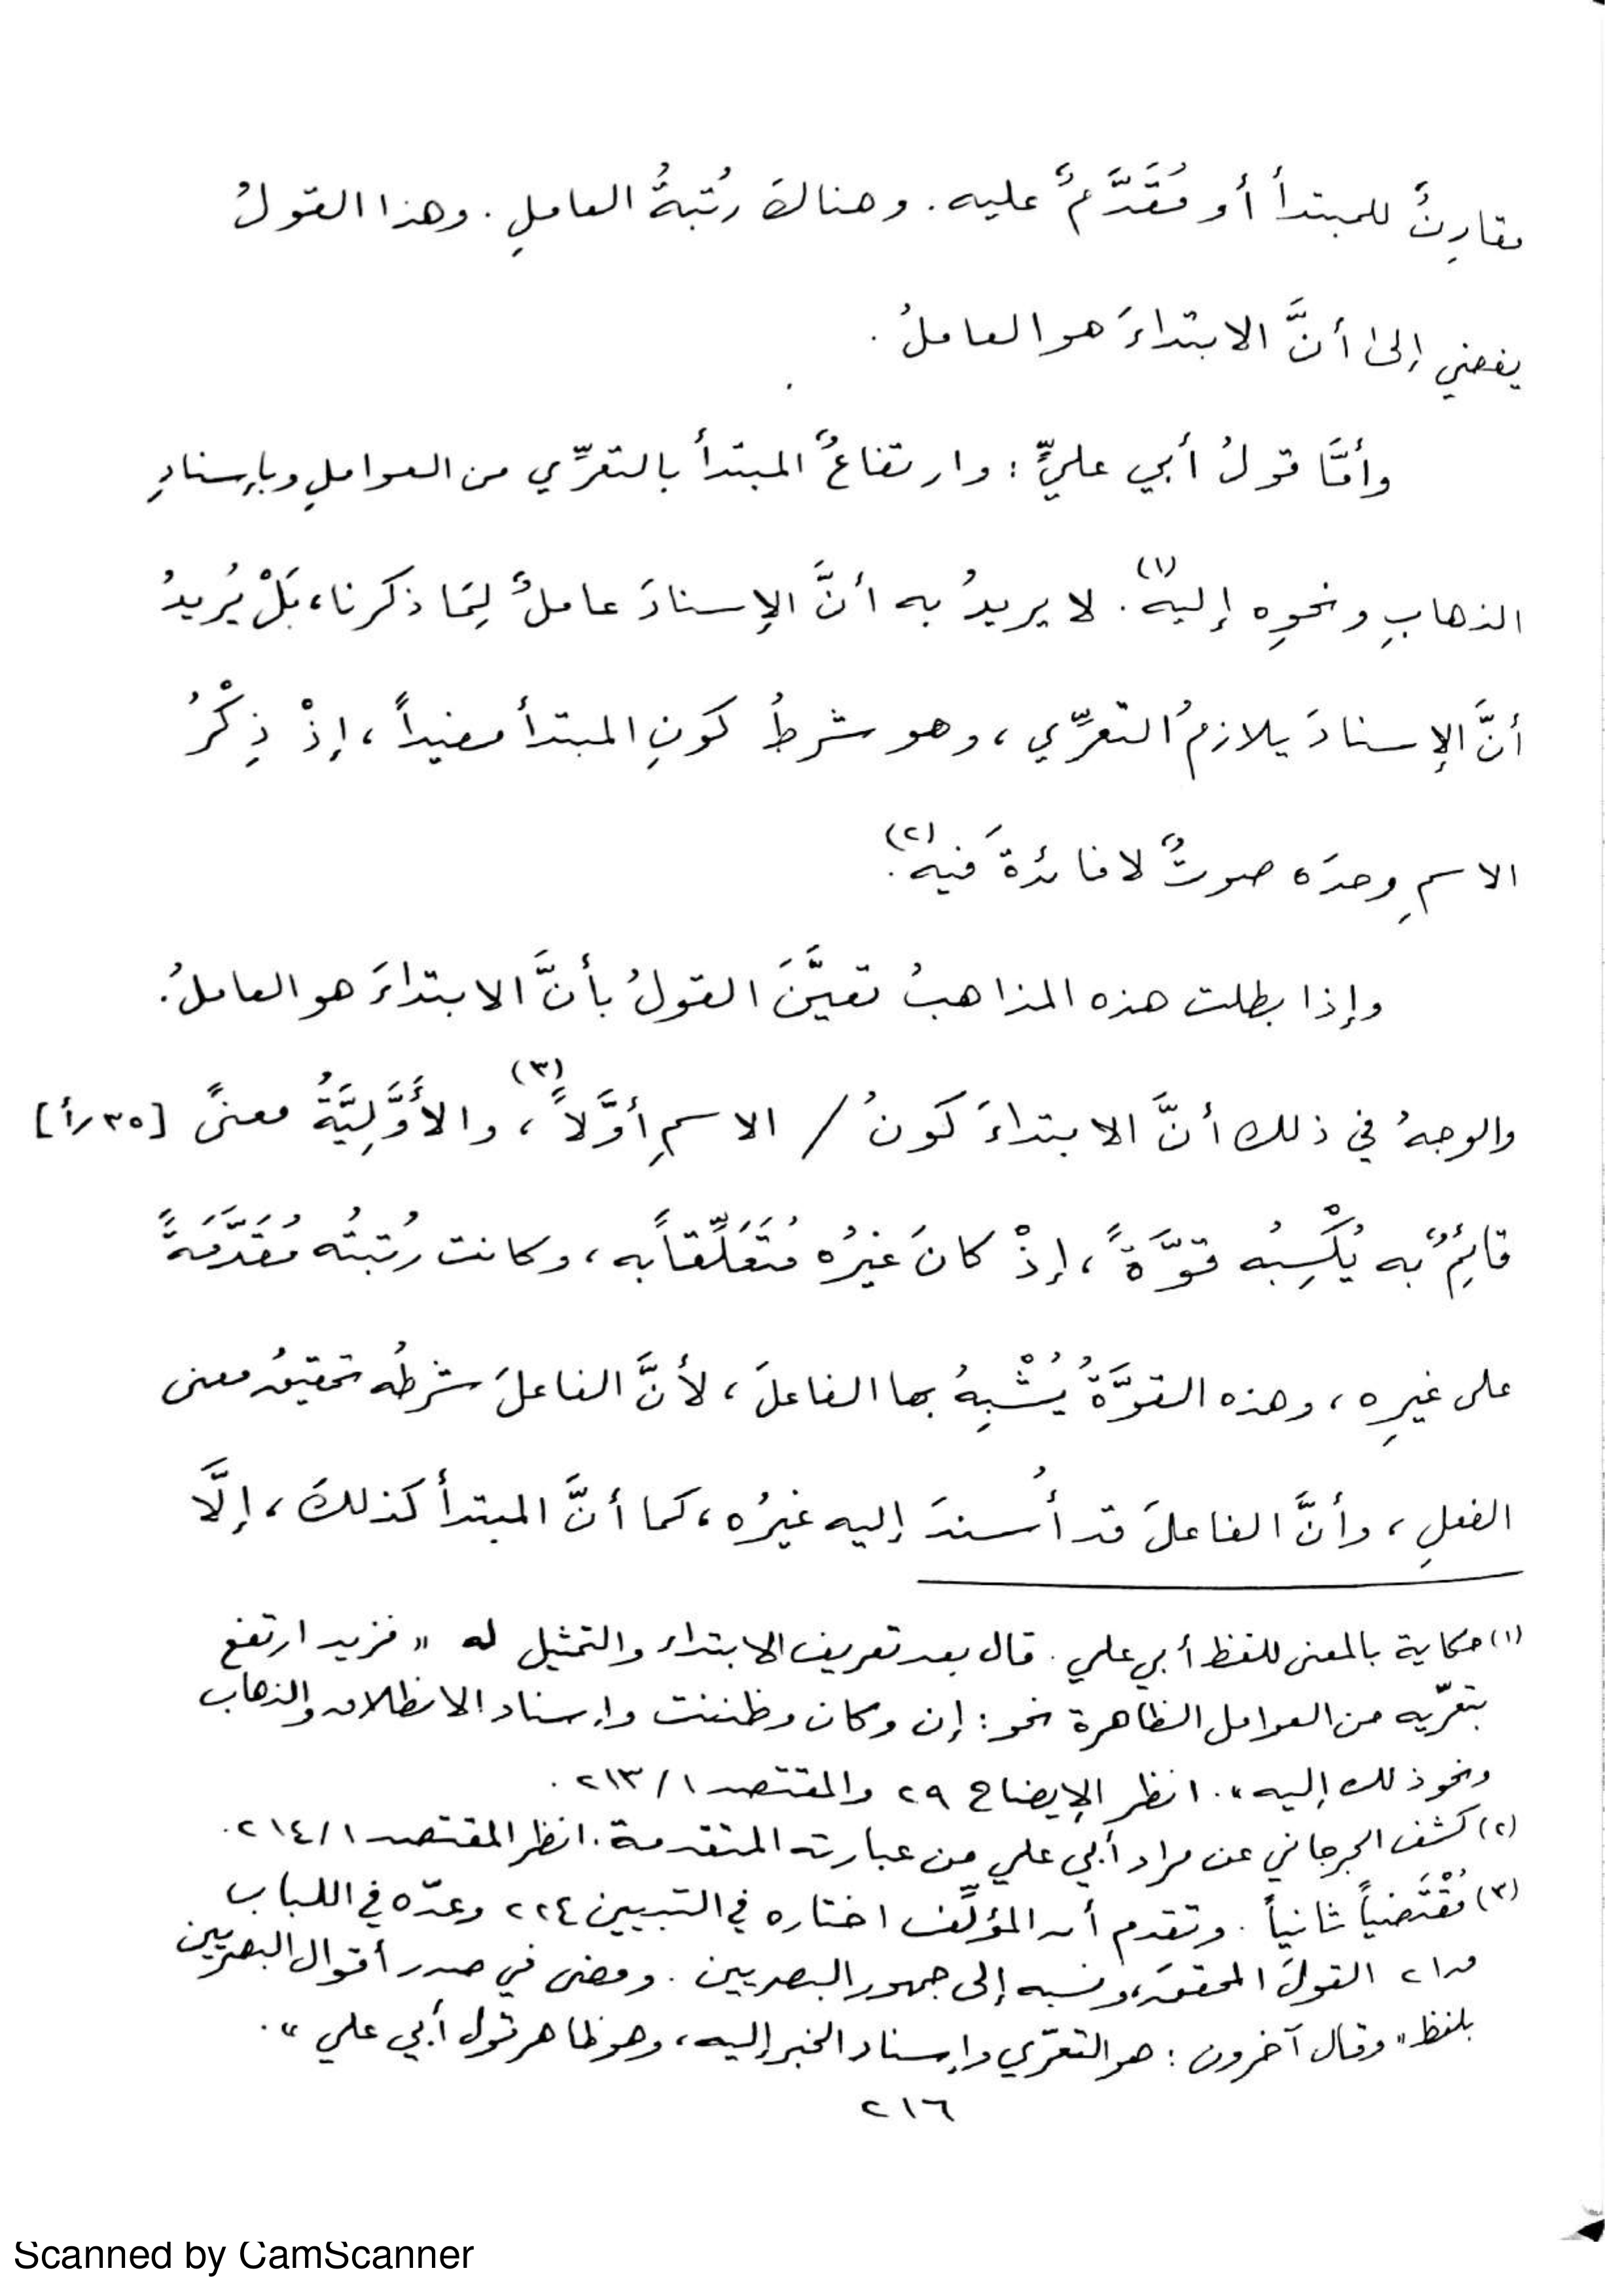 مقارِنٌ للمبتدأ أو مُقَدَّمٌ عليه. وهناك رُتبةُ العاملِ. وهذا القولُ
يفضي إلى أنَّ الابتداءَ هو العاملُ.
وأمَّا قولُ أبي عليٍّ: وارتفاعُ المبتدأ بالتعرِّي من العواملِ وبإسنادِ
الذهابِ ونحوِه إليه(١). لا يريدُ به أنَّ الإسنادَ عاملٌ لِمَا ذكرنا، بَلْ يُريدُ
أنَّ الإسنادَ يلازمُ التعرِّي، وهو شرطُ كونِ المبتدأ مفيداً، إذْ ذِكْرُ
الاسمِ وحدَه صوتٌ لا فائدةَ فيه(٢).
وإذا بطلت هذه المذاهبُ تعيَّنَ القولُ بأنَّ الابتداءَ هو العاملُ.
والوجهُ في ذلك أنَّ الابتداءَ كَونُ / الاسمِ أوَّلاً(٣)، والأَوَّلِيَّةُ معنىً [٣٥/أ]
قائِمٌ به يُكْسِبُه قوَّةً، إذْ كانَ غيرُه مُتَعَلِّقاً به، وكانت رُتبتُه مُقَدَّمَةً
على غيرِه، وهذه القوَّةُ يُشْبِهُ بها الفاعلَ، لأنَّ الفاعلَ شرطُه تحقيقُ معنى
الفعلِ، وأنَّ الفاعلَ قد أُسندَ إليه غيرُه، كما أنَّ المبتدأ كذلكَ، إلَّا
(١) حكاية بالمعنى للفظ أبي علي. قال بعد تعريف الابتداء والتمثيل له «فزيد ارتفع
بتعرّيه من العوامل الظاهرة نحو: إن وكان وظننت وإسناد الانطلاق والذهاب
ونحو ذلك إليه». انظر الإيضاح ٢٩ والمقتصد ١/٢١٣.
(٢) كشف الجرجاني عن مراد أبي علي من عبارته المتقدمة. انظر المقتصد ١/٢١٤.
(٣) مُقْتَضياً ثانياً. وتقدم أن المؤلِّف اختاره في التبيين ٢٢٤ وعدّه في اللباب
القولَ المحقق، ونسبه إلى جمهور البصريين. ومضى في صدر أقوال البصريين
بلفظ «وقال آخرون: هو التعرّي وإسناد الخبر إليه، وهو ظاهر قول أبي علي».
٢١٦
Scanned by CamScanner